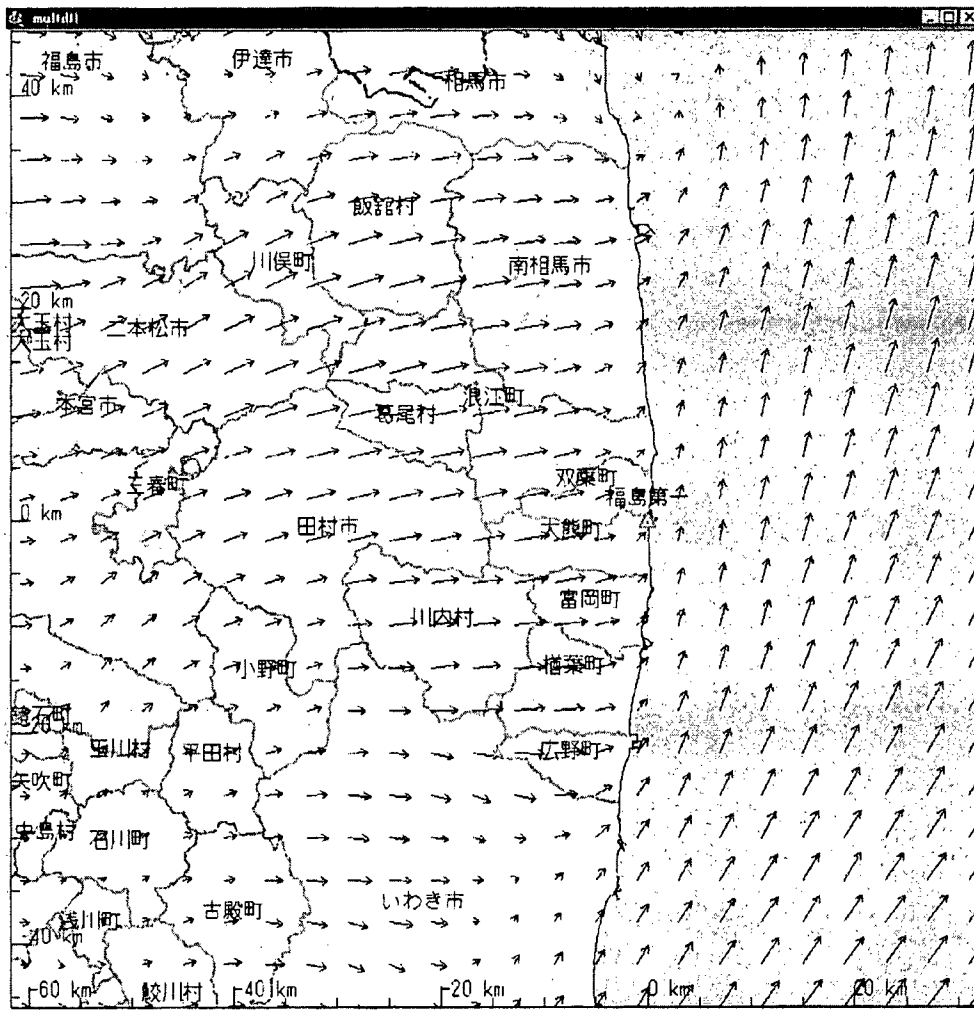 multdll
福島市
伊達市
40 km
相馬市
飯舘村
川俣町
南相馬市
20 km
大玉村
大玉村
二本松市
本宮市
浪江町
葛尾村
三春町
双葉町
福島第一
0 km
田村市
大熊町
富岡町
川内村
小野町
楢葉町
鏡石町
-20 km
玉川村
平田村
広野町
矢吹町
中島村
石川町
いわき市
古殿町
浅川町
-40 km
鮫川村
-60 km
-40 km
-20 km
0 km
20 km